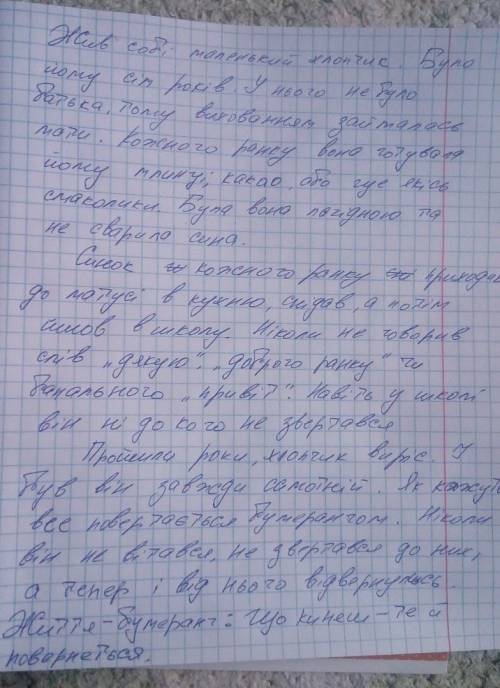 Жив собі маленький хлопчик. Було
йому сім років. У нього не було
батька, тому вихованням займалась
мати. Кожного ранку вона готувала
йому млинці, какао, або ще якісь
смаколики. Була вона лагідною та
не сварила сина.
Синок кожного ранку приходив
до матусі в кухню, снідав, а потім
ишов в школу. Ніколи не говорив
слів „дякую", „доброго ранку" чи
банального „привіт". Навіть у школі
він ні до кого не звертався
Пройшли роки, хлопчик виріс. І
був він завжди самотній. Як кажуть
все повертається бумерангом. Ніколи
він не вітався, не звертався до них,
а тепер і від нього відвернулись.
Життя-бумеранг: що кинеш - те й
повернеться.